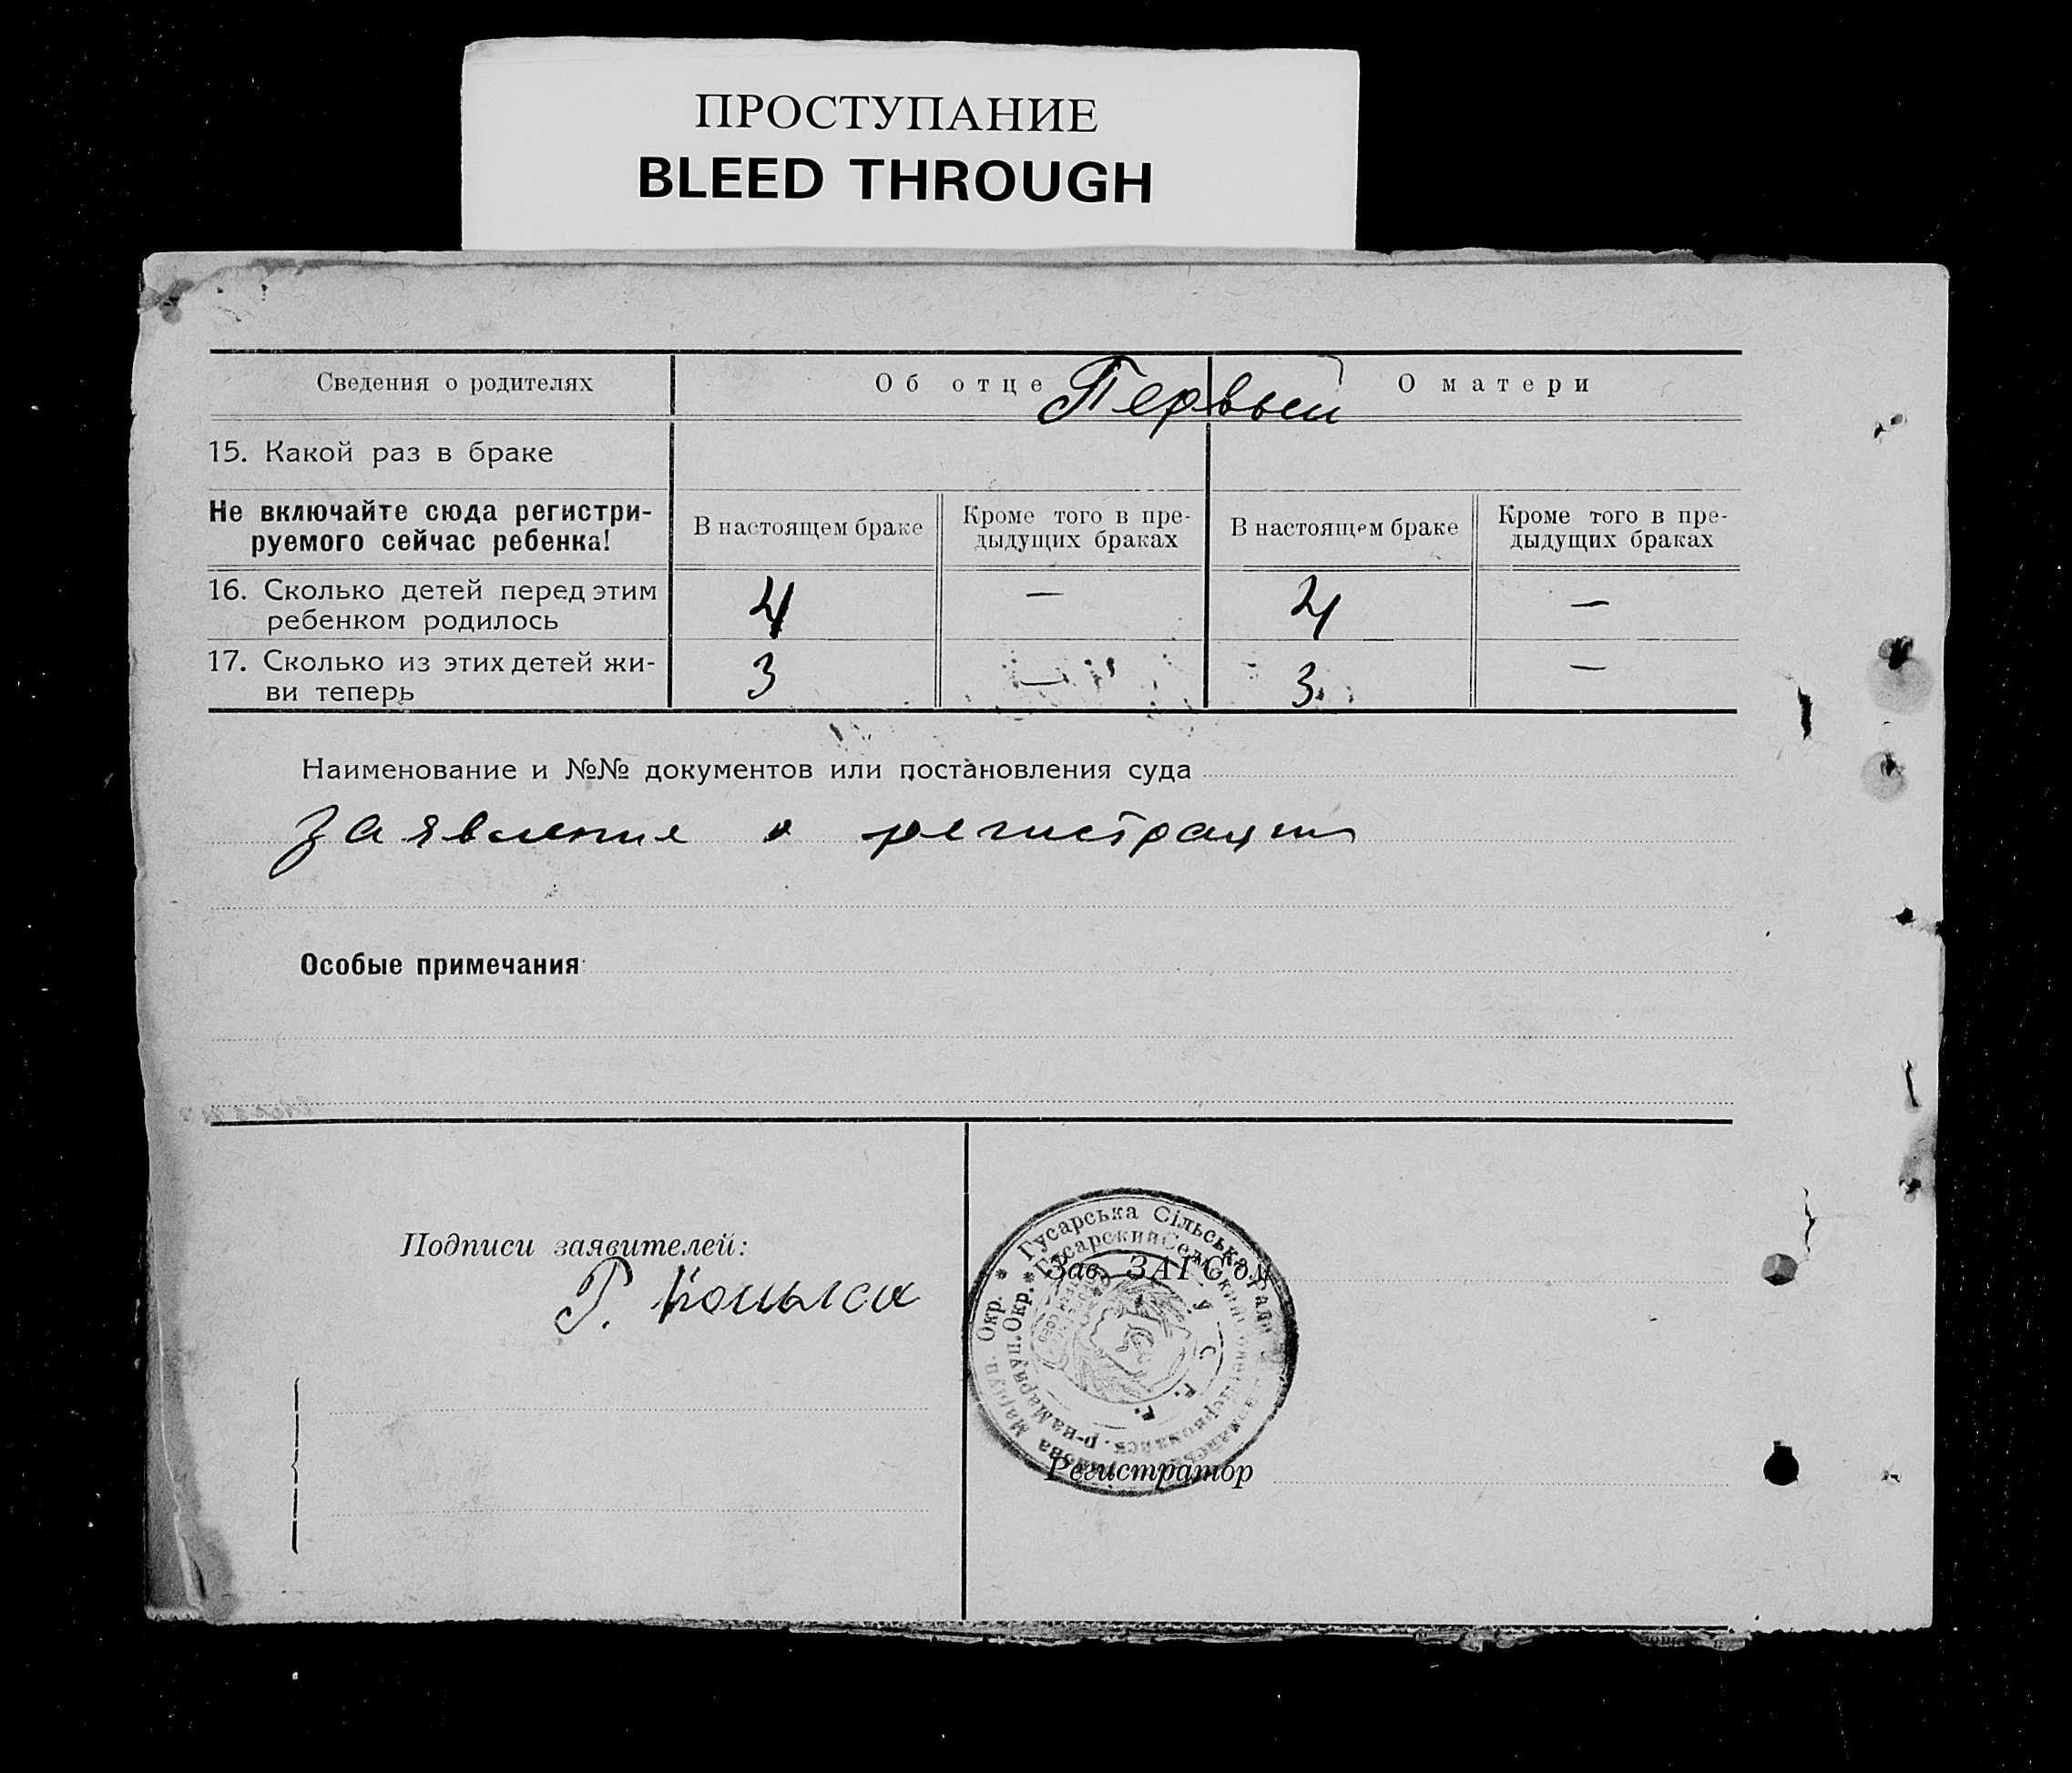 ПРОСТУПАНИЕ
BLEED THROUGH
Сведения о родителях
Об отце
О матери
Первый
15. Какой раз в браке
Не включайте сюда регистри-
руемого сейчас ребенка!
В настоящем браке
Кроме того в пре-
дыдущих браках
В настоящем браке
Кроме того в пре-
дыдущих браках
16. Сколько детей перед этим
ребенком родилось
4
—
4
—
17. Сколько из этих детей жи-
ви теперь
3
—
3
—
Наименование и №№ документов или постановления суда
заявление о регистрации
Особые примечания
Подписи заявителей:
Р.
Зав. ЗАГСом
Регистратор
Гусарська Сільська Рада
Гусарский Сельский
Маріуп. Окр.
р-на Мариуп. Окр.
У. С. Р. Р.